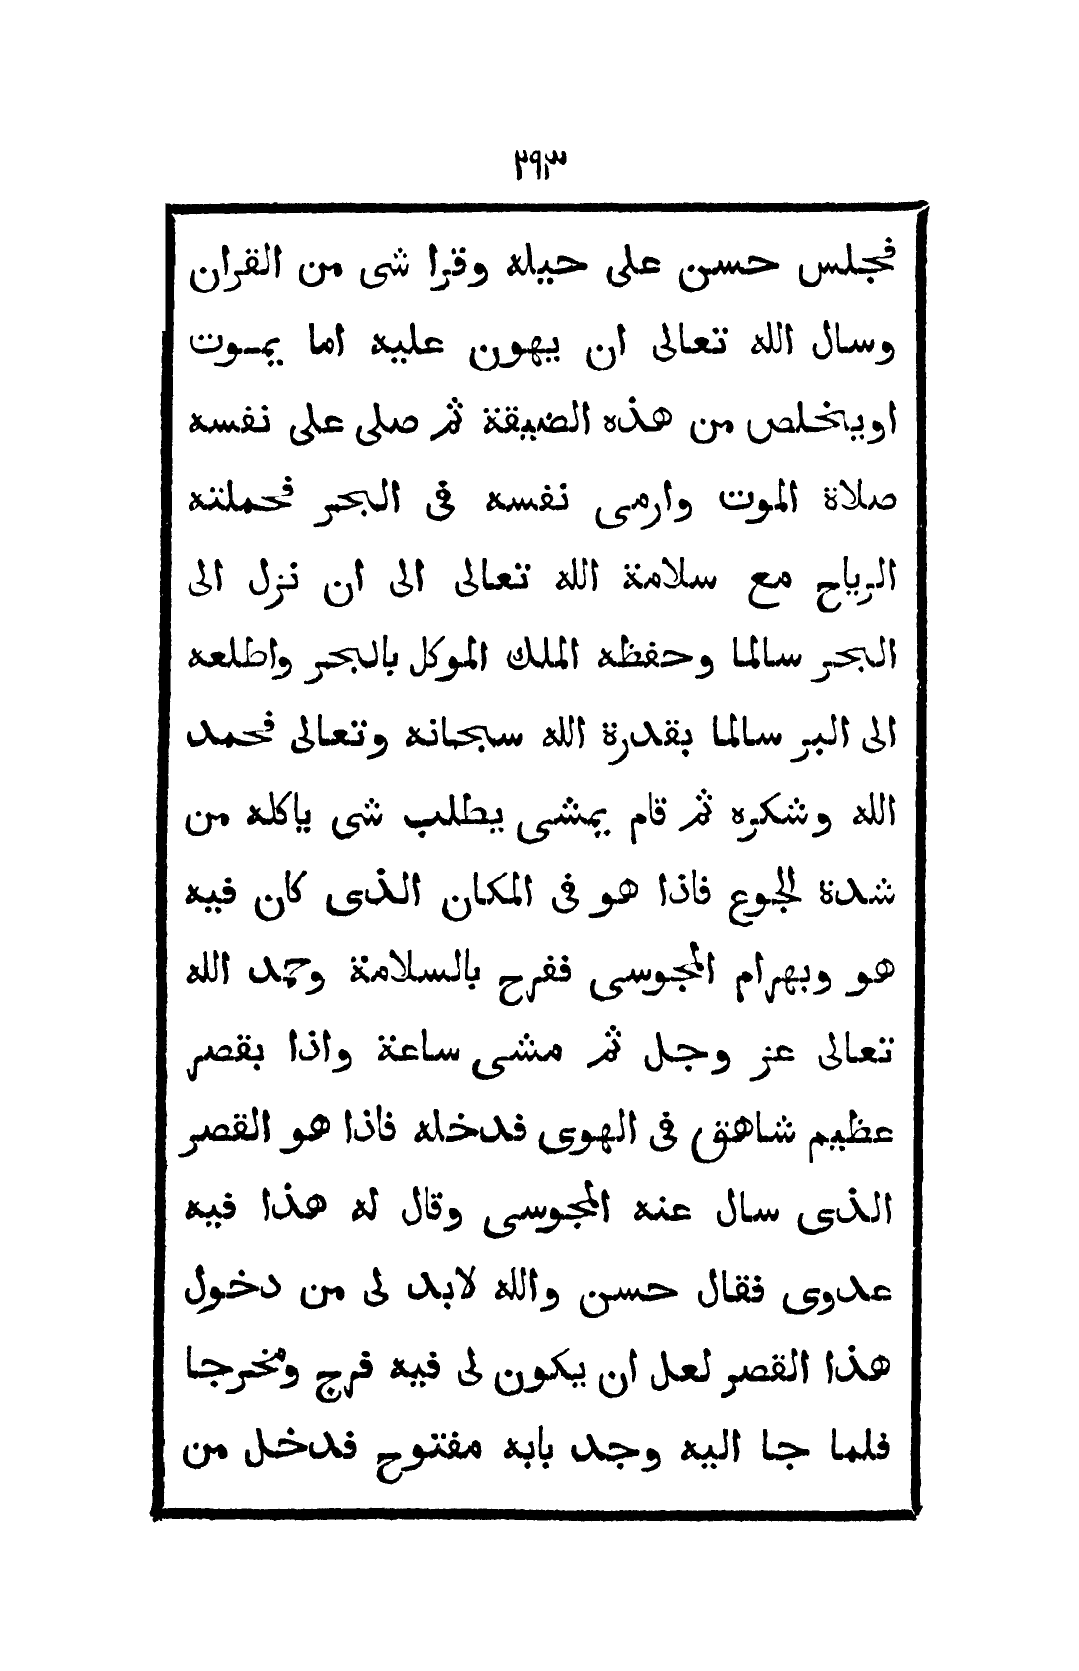 ٢٩٣
فجلس حسن على حيله وقرا شى من القران
وسال الله تعالى ان يهون عليه اما يموت
اويتخلص من هذه الضيقة ثم صلى على نفسه
صلاة الموت وارمى نفسه فى البحر فحملته
الرياح مع سلامة الله تعالى الى ان نزل الى
البحر سالما وحفظه الملك الموكل بالبحر واطلعه
الى البر سالما بقدرة الله سبحانه وتعالى فحمد
الله وشكره ثم قام يمشى يطلب شى ياكله من
شدة الجوع فاذا هو فى المكان الذى كان فيه
هو وبهرام المجوسى ففرح بالسلامة وحمد الله
تعالى عز وجل ثم مشى ساعة واذا بقصر
عظيم شاهق فى الهوى فدخله فاذا هو القصر
الذى سال عنه المجوسى وقال له هذا فيه
عدوى فقال حسن والله لابد لى من دخول
هذا القصر لعل ان يكون لى فيه فرج ومخرجا
فلما جا اليه وجد بابه مفتوح فدخل من